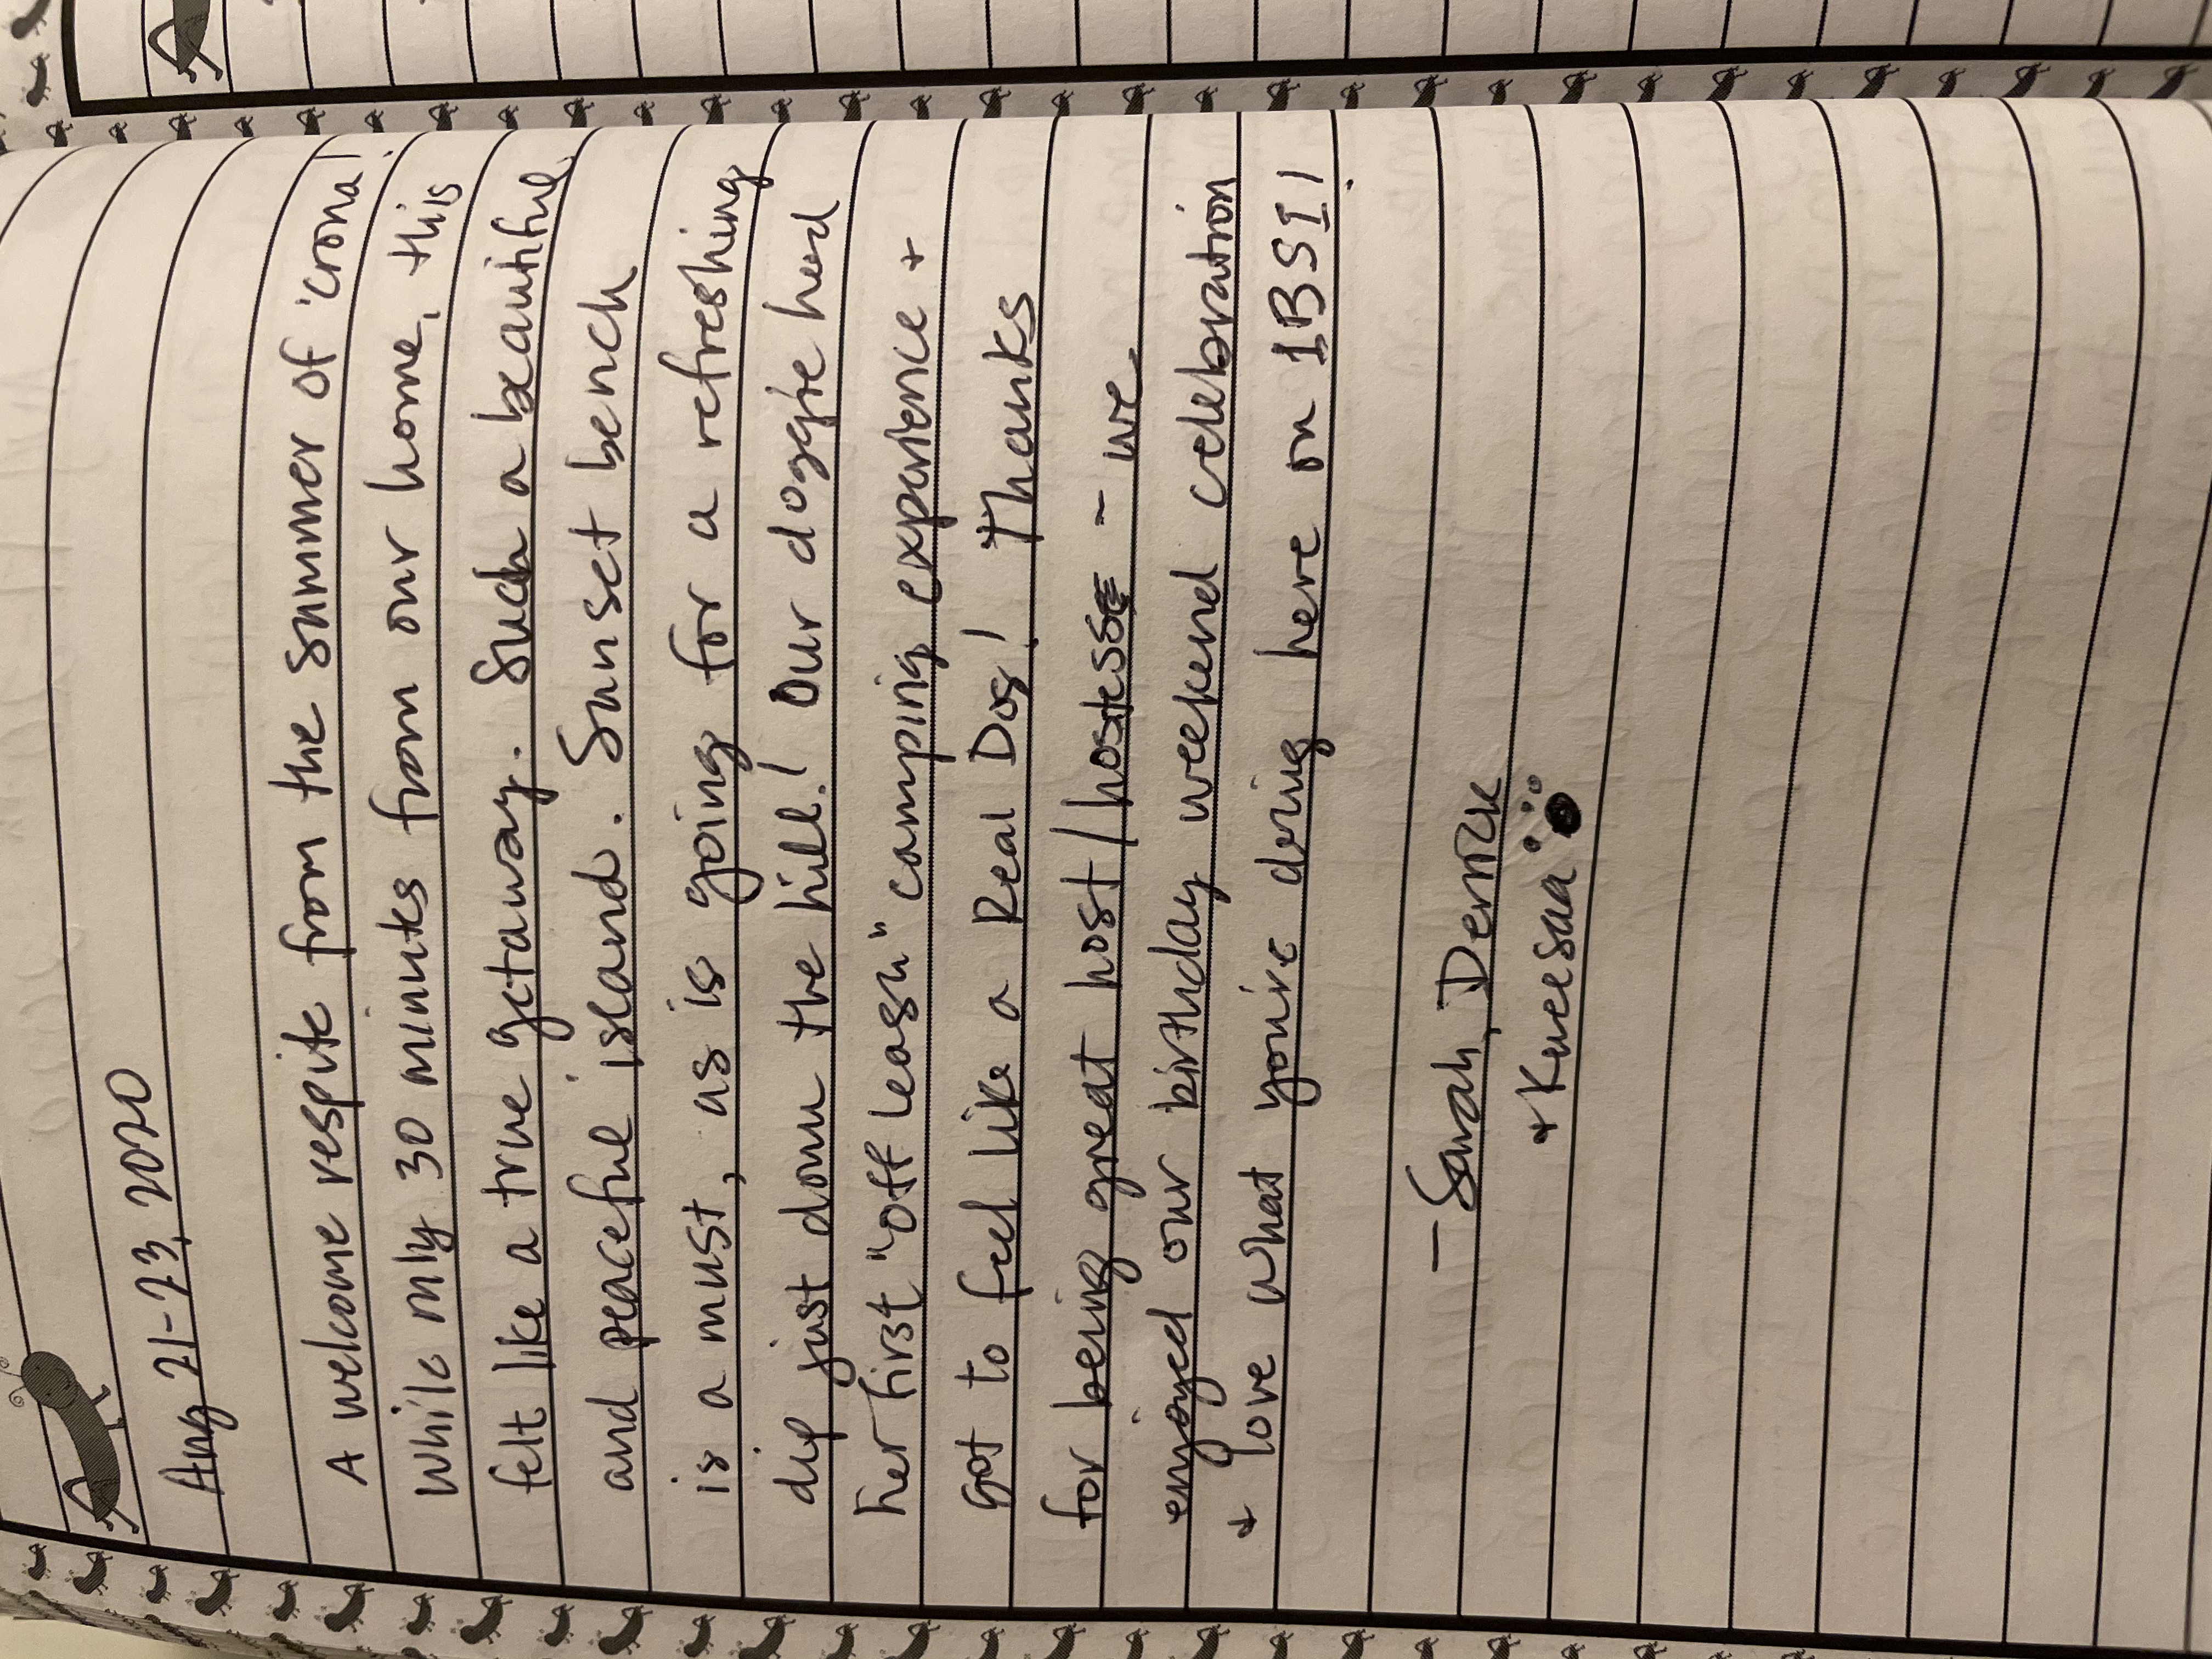 Aug 21-23, 2020
A welcome respite from the summer of 'crona!
While only 30 minutes from our home, this
felt like a true getaway. Such a beautiful
and peaceful island. Sunset bench
is a must, as is going for a refreshing
dip just down the hill! Our doggie had
her first "off leash" camping experience +
got to feel like a Real Dog! Thanks
for being great host/hostess - we
enjoyed our birthday weekend celebration
+ love what you're doing here on IBSI!
- Sarah, Derrick
+